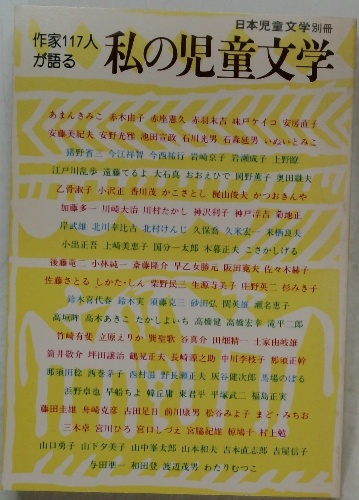 日本児童文学別冊
作家117人
が語る
私の児童文学
あまんきみこ 赤木由子 赤座憲久 赤羽末吉 味戸ケイコ 安房直子
安藤美紀夫 安野光雅 池田宣政 石川光男 石森延男 いぬいとみこ
猪野省三 今江祥智 今西祐行 岩崎京子 岩瀬成子 上野瞭
江戸川乱歩 遠藤てるよ 大石真 おおえひで 岡野薫子 奥田継夫
乙骨淑子 小沢正 香川茂 かこさとし 梶山俊夫 かつおきんや
加藤多一 川崎大治 川村たかし 神沢利子 神戸淳吉 菊地正
岸武雄 北川幸比古 北村けんじ 久保喬 久米宏一 来栖良夫
小出正吾 上崎美恵子 国分一太郎 木暮正夫 こさかしげる
後藤竜二 小林純一 斎藤隆介 早乙女勝元 阪田寛夫 佐々木赫子
佐藤さとる しかた・しん 柴野民三 生源寺美子 庄野英二 杉みき子
鈴木喜代春 鈴木実 須藤克三 砂田弘 関英雄 瀬名恵子
高垣眸 高木あきこ たかしよいち 高橋健 高橋宏幸 滝平二郎
竹崎有斐 立原えりか 巽聖歌 谷真介 田畑精一 土家由岐雄
筒井敬介 坪田譲治 鶴見正夫 長崎源之助 中川李枝子 那須正幹
那須田稔 西巻茅子 西村滋 野長瀬正夫 灰谷健次郎 馬場のぼる
浜野卓也 早船ちよ 韓丘庸 東君平 平塚武二 福島正実
藤田圭雄 舟崎克彦 古田足日 前川康男 松谷みよ子 まど・みちお
三木卓 宮川ひろ 宮口しづえ 宮脇紀雄 椋鳩十 村上勉
山口勇子 山下夕美子 山中峯太郎 山本和夫 吉本直志郎 吉屋信子
与田凖一 和田登 渡辺茂男 わたりむつこ